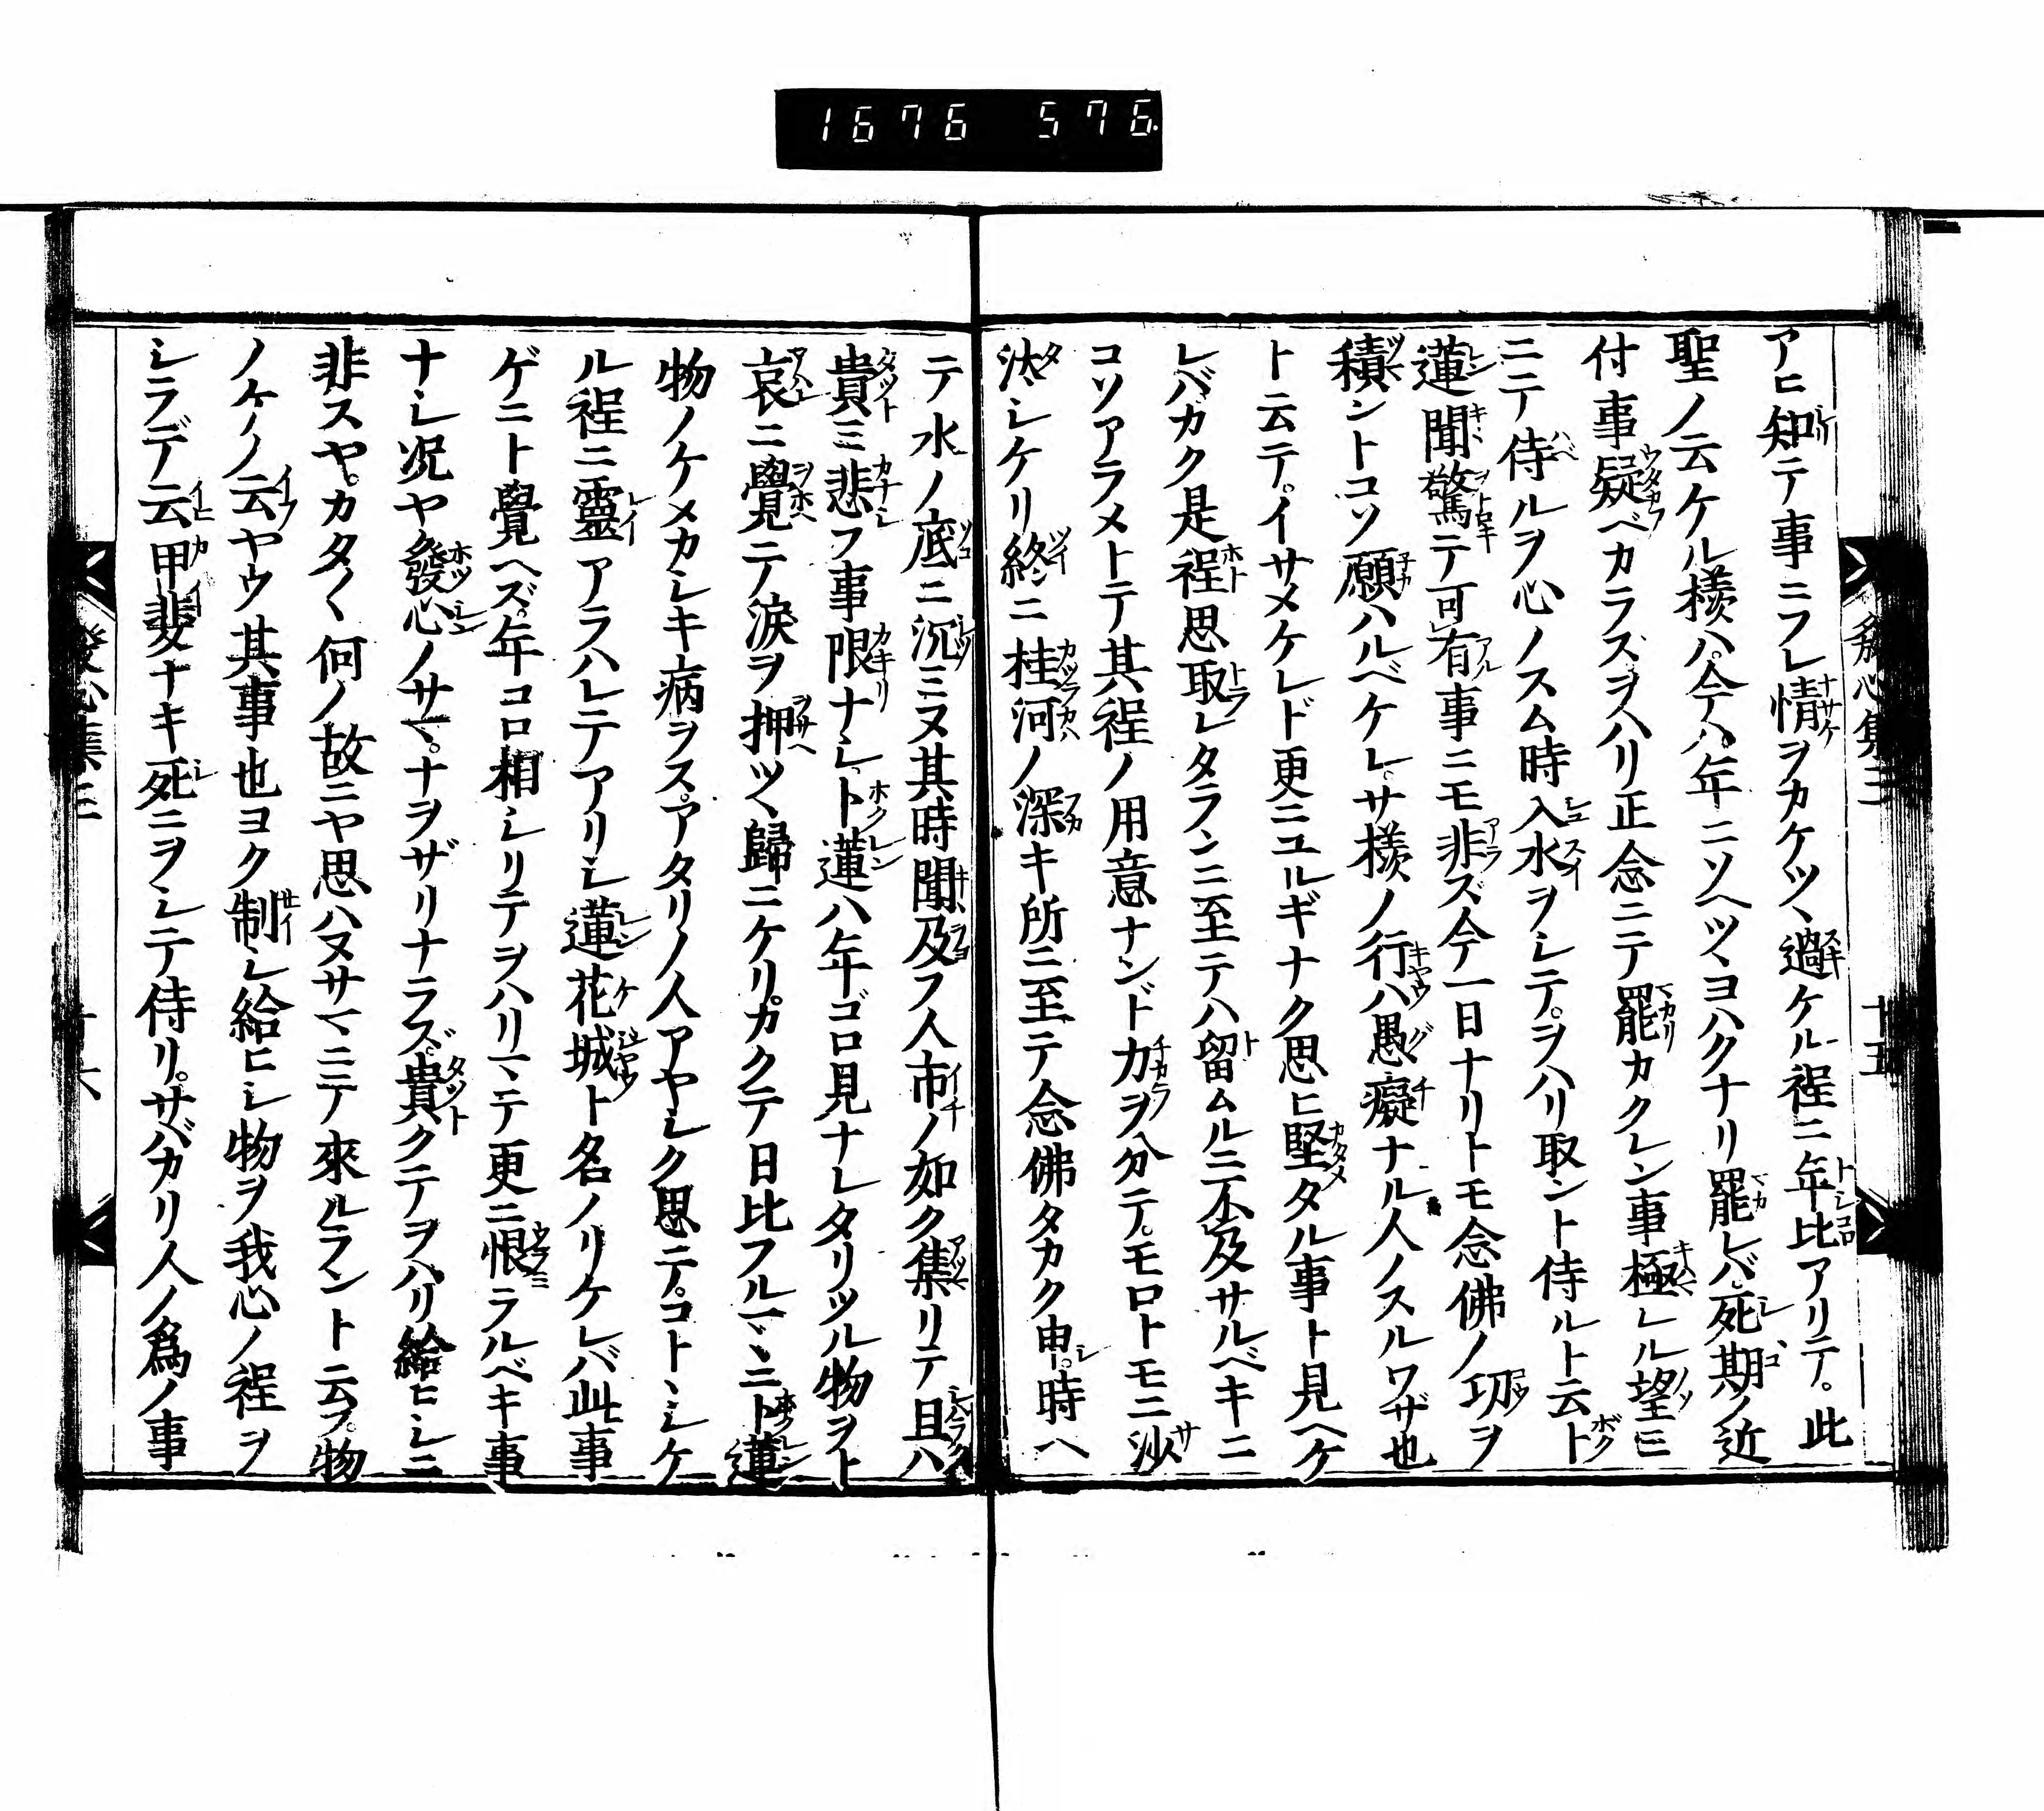 1676 576
發心集三
十五
アヒ知テ事ニフレ情ヲカケツヽ過ケル程ニ年比アリテ。此
聖ノ云ケル樣ハ。今ハ年ニソヘツヽヨハクナリ罷レバ。死期ノ近
付事疑ベカラズ。ヲハリ正念ニテ罷カクレン事極レル望ニ
ニテ侍ルヲ心ノスム時入水ヲシテ。ヲハリ取ント侍ルト云ト
蓮聞驚テ可有事ニモ非ズ今一日ナリトモ念佛ノ功ヲ
積ントコソ願ハルベケレ。サ樣ノ行ハ愚癡ナル人ノスルワザ也
ト云テ。イサメケレド更ニユルギナク思ヒ堅タル事ト見ヘケ
レバ。カク是程思取レタランニ至テハ留ムルニ不及サルベキニ
コソアラメトテ其程ノ用意ナンド力ヲ分テ。モロトモニ沙
汰シケリ終ニ桂河ノ深キ所ニ至テ念佛タカク申。時ヘ
テ水ノ底ニ沉ミヌ其時聞及フ人市ノ如ク集リテ且ハ
貴ミ悲フ事限ナシ。ト蓮ハ年ゴロ見ナレタリツル物ヲト
哀ニ覺ヘテ淚ヲ押ツヽ歸ニケリ。カクテ日比フルマヽニト蓮
物ノケメカシキ病ヲス。アタリノ人アヤシク思テ。コトヽシケ
ル程ニ靈アラハレテアリシ蓮花城ト名ノリケレバ此事
ゲニト覺ヘズ。年コロ相シリテヲハリマテ更ニ恨ラルベキ事
ナシ况ヤ發心ノサマ。ナヲザリナラズ。貴クテヲハリ給ヒシニ
非スヤ。カタ〳〵何ノ故ニヤ思ハヌサマニテ來ルラント云フ。物
ノケノ云ヤウ其事也ヨク制シ給ヒシ物ヲ我心ノ程ヲ
シラデ云甲斐ナキ死ニヲシテ侍リ。サバカリ人ノ爲ノ事
發心集三
十六